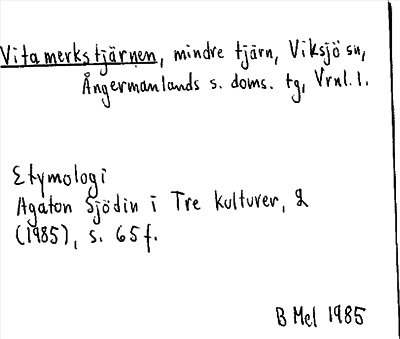 Vitamerkstjärnen, mindre tjärn, Viksjö sn,
Ångermanlands s. doms. tg, Vrnl. l.
Etymologi
Agaton Sjödin i Tre kulturer, 2
(1985), s. 65 f.
B Mel 1985